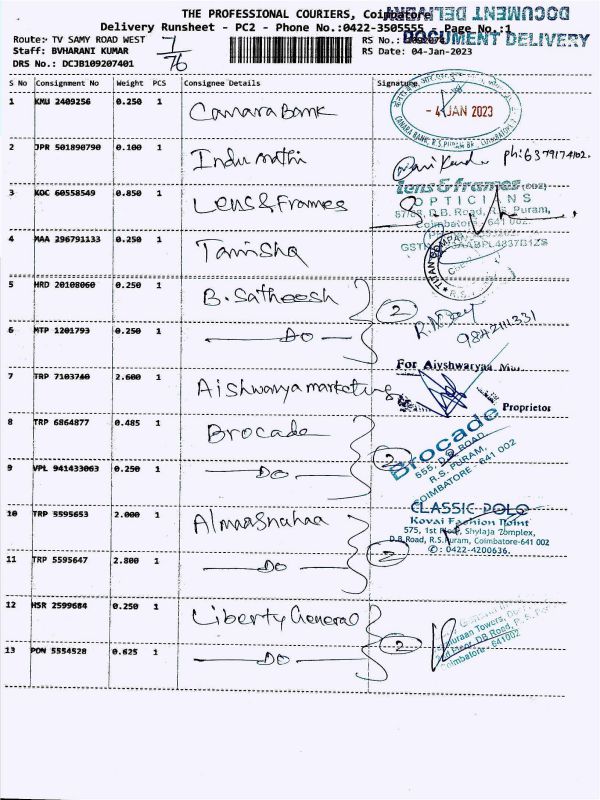 THE PROFESSIONAL COURIERS, Coimbatore
DOCUMENT DELIVERY
Delivery Runsheet - PC2 - Phone No.:0422-3505555 Page No.:1
DOCUMENT DELIVERY
Route:- TV SAMY ROAD WEST
Staff: BVHARANI KUMAR
DRS No.: DCJB109207401
7/76
RS No.:
RS Date: 04-Jan-2023
S No Consignment No Weight PCS Consignee Details Signature
1 KMU 2409256 0.250 1 Canara Bank
- 4 JAN 2023
CANARA BANK, R.S.PURAM BR., COIMBATORE
2 JPR 501890790 0.100 1 Indumathi
ph: 6379174102.
3 KOC 60558549 0.850 1 Lens & Frames
Lens & frames
OPTICIANS
D.B. Road, R.S. Puram,
Coimbatore - 641 002
4 MAA 296791133 0.250 1 Tanisha
TITAN COMPANY
5 HRD 20108060 0.250 1 B. Satheesh
2
9842111331
6 MTP 1201793 0.250 1 — DO —
7 TRP 7103740 2.600 1 Aishwarya marketing
For Aiyshwaryaa
Proprietor
8 TRP 6864877 0.485 1 Brocade
2
Brocade
555, D.B. ROAD,
R.S. PURAM,
COIMBATORE - 641 002
9 VPL 941433063 0.250 1 — DO —
10 TRP 5595653 2.000 1 Almaasnahaa
2
CLASSIC POLO
Kovai Fashion Point
575, 1st Floor, Shylaja Complex,
D.B.Road, R.S.Puram, Coimbatore-641 002
✆: 0422-4200636.
11 TRP 5595647 2.800 1 — DO —
12 HSR 2599684 0.250 1 Liberty General
2
Towers,
2nd Floor, DB Road,
Coimbatore - 641002
13 PON 5554528 0.625 1 — DO —